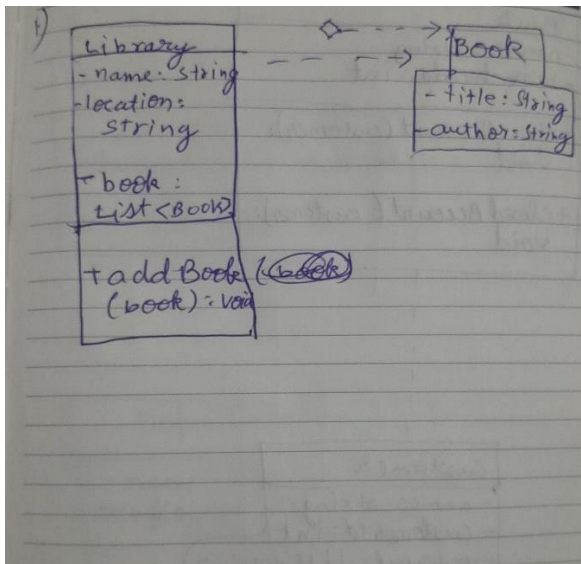 1)
Library
- name: String
- location:
String
- book:
List <Book>
+ addBook
(book): void
Book
- title: String
- author: String